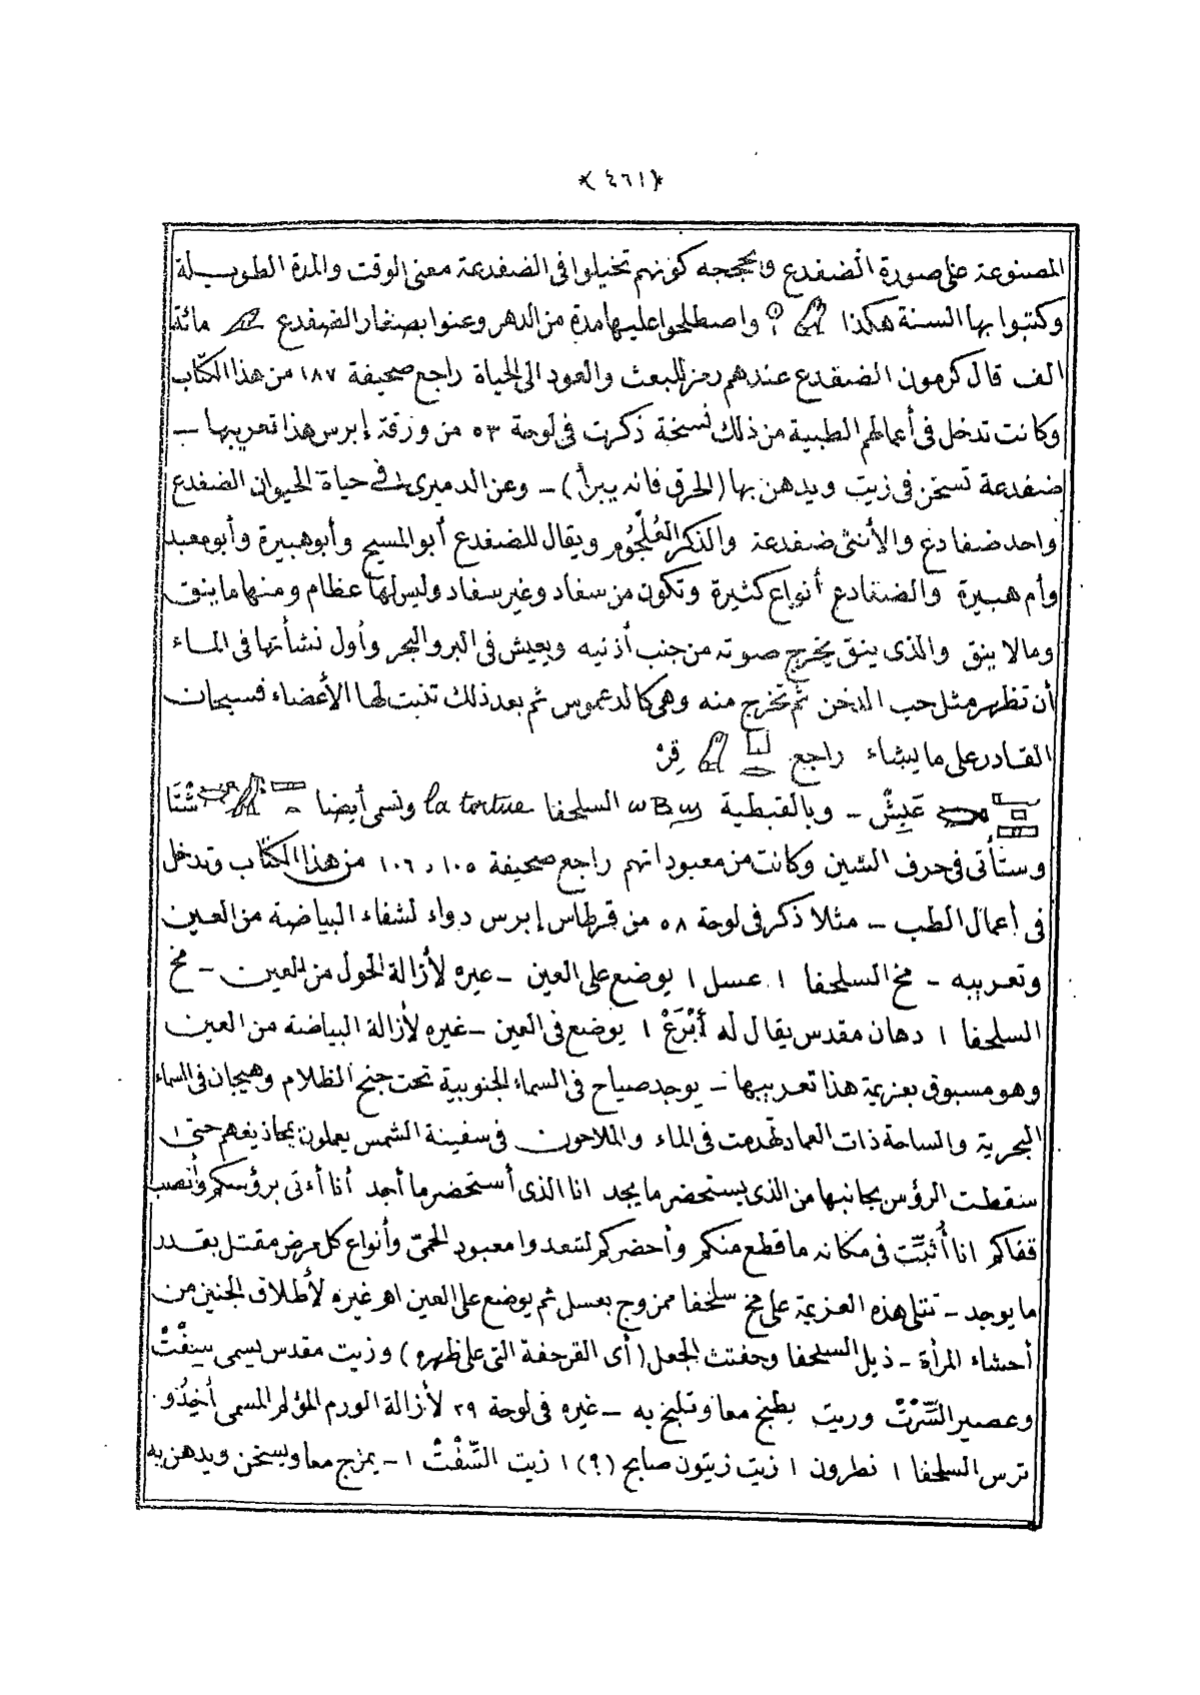 ﴿٤٦١﴾
المصنوعة على صورة الضفدع كونهم تخيلوا فى الضفدعة معنى الوقت والمدة الطويلة
وكتبوا بها السنة هكذا واصطلحوا عليها مدة من الدهر وعنوا بصغار الضفدع مائة
الف قال كرمون الضفدع عندهم رمز للبعث والعود الى الحياة راجع صحيفة ١٨٧ من هذا الكتاب
وكانت تدخل فى أعمالهم الطبية من ذلك نسخة ذكرت فى لوحة ٥٣ من ورقة إبرس هذا تعريبها ــ
ضفدعة تسخن فى زيت ويدهن بها (الحرق فانه يبرأ) ــ وعن الدميرى فى حياة الحيوان الضفدع
واحد ضفادع والأنثى ضفدعة والذكر العُلْجُوم ويقال للضفدع أبو المسيح وأبو هبيرة وأبو معبد
وأم هبيرة والضفادع أنواع كثيرة وتكون من سفاد وغير سفاد وليس لها عظام ومنها ما ينق
وما لا ينق والذى ينق يخرج صوته من جنب أذنيه ويعيش فى البر والبحر وأول نشأتها فى الماء
أن تظهر مثل حب الدخن ثم تخرج منه وهى كالدعموص ثم بعد ذلك تنبت لها الأعضاء فسبحان
القادر على ما يشاء راجع قِرْ
عَبِشْ ــ وبالقبطية السلحفا la tortue وتسمى أيضا شْتَا
وستأتى فى حرف الشين وكانت من معبوداتهم راجع صحيفة ١٠٥ ، ١٠٦ من هذا الكتاب وتدخل
فى أعمال الطب ــ مثلا ذكر فى لوحة ٥٨ من قرطاس إبرس دواء لشفاء البياضة من العين
وتعريبه ــ مخ السلحفا ١ عسل ١ يوضع على العين ــ غيره لأزالة الحول من العين ــ مخ
السلحفا ١ دهان مقدس يقال له أَبْرَعْ ١ يوضع فى العين ــ غيره لأزالة البياضة من العين
وهو مسبوق بعزيمة هذا تعريبها ــ يوجد صياح فى السماء الجنوبية تحت جنح الظلام وهيجان فى السماء
البحرية والساحة ذات العماد تهدمت فى الماء والملاحون فى سفينة الشمس يعملون بمجاذيفهم حتى
سقطت الرؤس بجانبها من الذى يستحضر ما يجد انا الذى أستحضر ما أجد أنا أتى برؤسكم وأنصب
قفاكم انا أثبّت فى مكانه ما قطع منكم وأحضركم لتبعدوا معبود الحمى وأنواع كل مرض مقتل بقدر
ما يوجد ــ تتلى هذه العزيمة على مخ سلحفا ممزوج بعسل ثم يوضع على العين اهـ غيره لأطلاق الجنين من
أحشاء المرأة ــ ذيل السلحفا وحفتث الجعل (أى القرحفة التى على ظهره) وزيت مقدس يسمى سِفْتْ
وعصير السِّرْتْ وزيت يطبخ معا وتلبخ به ــ غيره فى لوحة ٢٩ لأزالة الورم المؤلم المسمى أُخِدُو
ترس السلحفا ١ نطرون ١ زيت زيتون صابح (؟) ١ زيت السِّفْتْ ١ ــ يمزج معا ويسخن ويدهن به